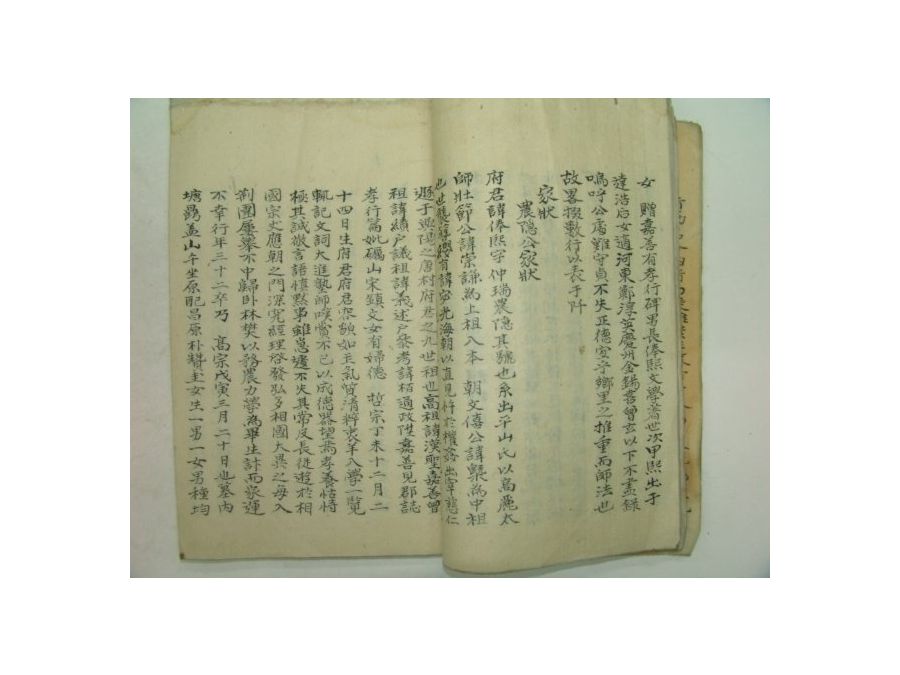 女 贈嘉善有孝行碑男長俸熙文學著世次甲熙出于
達浩后女適河東鄭淳 慶州金錫 曾玄以下不盡錄
嗚呼公處難守貞不失正德宜乎鄉里之推重而師法也
故畧掇數行以表于阡
家狀
農隱公家狀
府君諱俸熙字仲瑞農隱其號也系出平山氏以高麗太
師壯節公諱崇謙爲上祖入本 朝文僖公諱槩爲中祖
也世襲簪纓有諱 光海朝以直見忤於權奸出宰 仁
遯于 陽之唐村府君之九世祖也高祖諱漢聖嘉善曾
祖諱績戶議祖諱義述戶參考諱栢通政陞嘉善見郡誌
孝行篇妣礪山宋鎮文女有婦德 哲宗丁未十二月二
十四日生府君府君容貌如玉氣質清粹 入學一覽
輒記文詞大進塾師嘆賞不已以成德器望焉孝養怙恃
極其誠敬言語愼默事雖怱遽不失其常及長從遊於相
國宗丈應朝之門深究經理啓發弘多相國大異之每入
制圍屢葉不中歸臥林樊以務農力學爲畢生計而家運
不幸行年三十二卒乃 高宗戊寅三月二十日也墓內
塘 盖山午坐原配昌原朴贊圭女生一男一女男種均